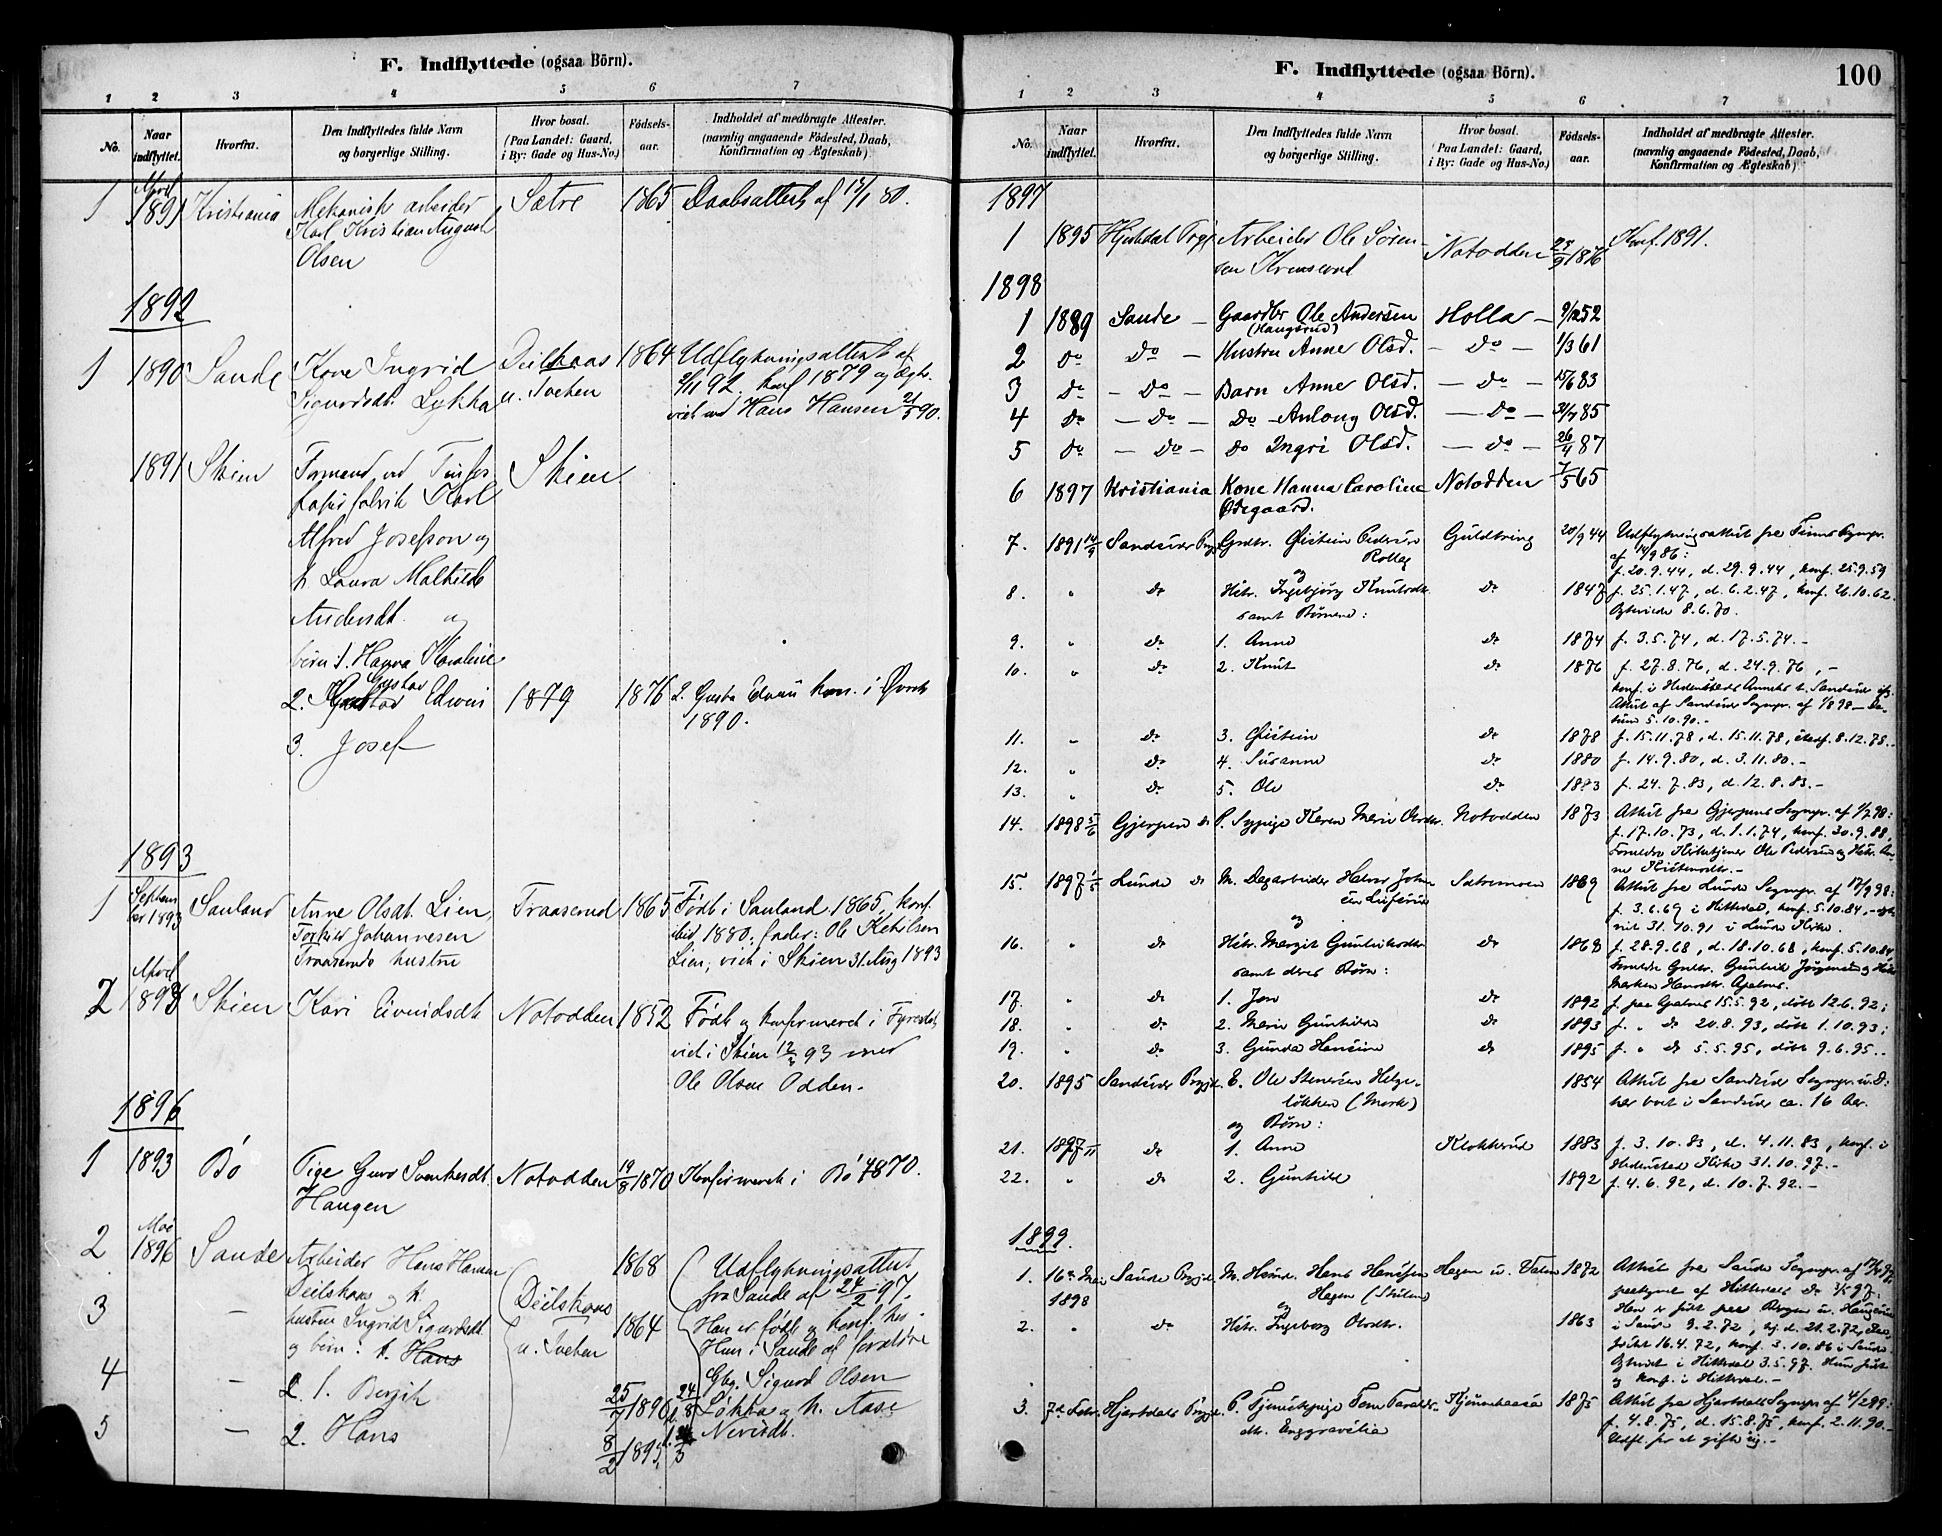 F. Indflyttede (ogsaa Börn).
1 2 3 4 5 6 7
No. Naar indflyttet. Hvorfra. Den Indflyttedes fulde Navn og borgerlige Stilling. Hvor bosat. (Paa Landet: Gaard, i By: Gade og Hus-No.) Födsels-aar. Indholdet af medbragte Attester. (navnlig angaaende Födested, Daab, Konfirmation og Ægteskab)
1 April 1891 Kristiania Mekanisk arbeider Sætre 1865 Daabsattest af
Karl Kristian August
Olsen
1892
1 1890 Sande Kone Ingrid Deilskaas 1864 Udflytningsattest af
Sigurdsdt. Løkka u. Tveten 92, konf 1879 og
viet ved Hans Hansen 21/5 90.
1891 Skien Formand ved Skien
Karl
Alfred Josefson og
h. Laura Mathilde
Andersdt. og
børn: 1. Hanna Karoline
2. Gustav Edwin 1879 1876 2. Gustav Edvin kon. i
1890.
3. Josef
1893
1 September 1893 Sauland Anne Olsdt. Lien, Traaserud 1865 Født i Sauland 1865, konf.
Torkild Johannesen ibid 1880; fader: Ole Ketilsen
Traaseruds hustru Lien, viet i Skien 31 Aug 1893
2 April 1893 Skien Kari Eivindsdt. Notodden 1852 Født og konfirmeret i Fyresdal,
viet i Skien 12/2 93 med
Ole Olsen Odden.
1896
1 1893 Bø Pige Guro Svenkesdt. Notodden 19/8 1870 Konfirmeret i Bø 1870.
Haugen
2 Mai 1896 Sande Arbeider Hans Hansen 1868 Udflytningsattest
Deilskaas og h. Deilskaas fra Sande af 24/2 97.
3 — hustru Ingrid Sigurdsdt. u. Tveten 1864 Han er født og konf.
og børn: 1. Hans Hun i Sande af forældre
4 — 1. Bergit 25/7 1890 Gbg. Sigurd Olsen
5 — 2. Hans 8/2 1895 Løkka og h. Aase
F. Indflyttede (ogsaa Börn). 100
1 2 3 4 5 6 7
No. Naar indflyttet. Hvorfra. Den Indflyttedes fulde Navn og borgerlige Stilling. Hvor bosat. (Paa Landet: Gaard, i By: Gade og Hus-No.) Födsels-aar. Indholdet af medbragte Attester. (navnlig angaaende Födested, Daab, Konfirmation og Ægteskab)
1897
1 1895 Hjertdal Prgj. Arbeider Ole Søren- Notodden 23/9 1876 Konf. 1891.
sen
1898
1 1889 Sande — Gaardbr Ole Andersen Holla — 52
(Haugerud)
2 Do Do — Hustru Anne Olsd. — Do — 1/3 61
3 Do — Do — Barn Anne Olsd. — Do — 15/6 83
4 Do — Do — Do — Anlaug Olsd. — Do — 85
5 Do — Do — Do Ingri Olsd. — Do — 26/4 87
6 1897 Kristiania Kone Hanna Caroline Notodden 7/5 65
Ødegaard.
7. 1891 14/9 Sandsvær Prgj. Grdbr. Øistein Pedersen Guldtring 20/9 44 Udflytningsattest fra
Rollag af 14/9 86:
og f. 20.9.44, d. 29.9.44, konf. 25.9.59
8. " Do Hstr. Ingebjørg Knutsdtr. Do 1847 f. 25.1.47, d. 6.2.47, konf. 26.10.62.
samt Børnene: Ægteviede 8.6.70.
9. " Do 1. Anne Do 1874 f. 3.5.74, d. 17.5.74.-
10. " Do 2. Knut Do 1876 f. 27.8.76, d. 24.9.76, -
5.10.90.-
11. " Do 3. Øistein Do 1878 f. 15.11.78, d. 15.11.78, stadf. 8.12.78.-
12. " Do 4. Susanne Do 1880 f. 14.9.80, d. 3.11.80.-
13. " Do 5. Ole Do 1883 f. 24.7.83, d. 12.8.83.-
14. 1898 5/6 Gjerpen Do P. Sypige Karen Marie Olsdtr. Notodden 1873 Attest fra Gjerpens Sognpr. af 1/7 98:
f. 17.10.73, d. 1.1.74, konf. 30.9.88,
Forældre Kirketjener Ole Pedersen og Hstr. An-
ne
15. 1897 1/5 Lunde Do M. Dagarbeider Halvor Johan- Sætremoen 1869 Attest fra Lunde Sognpr. af 17/9 98:
sen f. 3.6.69 i Hitterdal, konf. 5.10.84, -
og viet 31.10.91 i Lunde Kirke.
16. " Do Hstr. Margit Gunleiksdtr. Do 1868 f. 28.9.68, d. 18.10.68, konf. 5.10.84,
samt deres Børn: Forældre Gunleik Jørgensen og Hstr.
17. " Do 1. Jon Do 1892 f. paa 15.5.92, døbt 12.6.92;
18. " Do 2. Marie Gunhilde Do 1893 f. " Do 20.8.93, døbt 1.10.93;
19. " Do 3. Gunda Hansine Do 1895 f. " Do 5.5.95, døbt 9.6.95..
20. 1895 Sandsvær Prgjd. E. Ole Stenersen Helge- 1854 Attest fra Sandsvær Sognpr. u. D:
løkken (Mork) har boet i Sandsvær ca. 16 Aar.
og Børn:
21. 1897 Do 1. Anne Klokkerud 1883 f. 3.10.83, d. 4.11.83, konf. i
Hedenstad Kirke 31.10.97.-
22. " Do 2. Gunhild 1892 f. 4.6.92, d. 10.7.92.-
1899.
1. 16de Mai 1898 Sande Prgjd. M. Hans Hansen Hagen u. 1872 Attest fra Sande Sognpr. af
Hagen
og
i Sande 9.2.72, hj. d. 21.2.72,
2. " Do Hstr. Ingeborg Olsdtr. 1863 16.4.72, konf. 3.10.86 i Sande.
Ægteviet i Hitterdal 3.5.97. Hun født
og konf. i Hitterdal.-
3. Hjartdals Prgjd. P. Tjenestepige 1875 Attest fra Hjartdals Sognpr. af 4/2 99:
f. 4.8.75, d. 15.8.75, konf. 2.11.90.-
Udfl. for at gifte sig.-